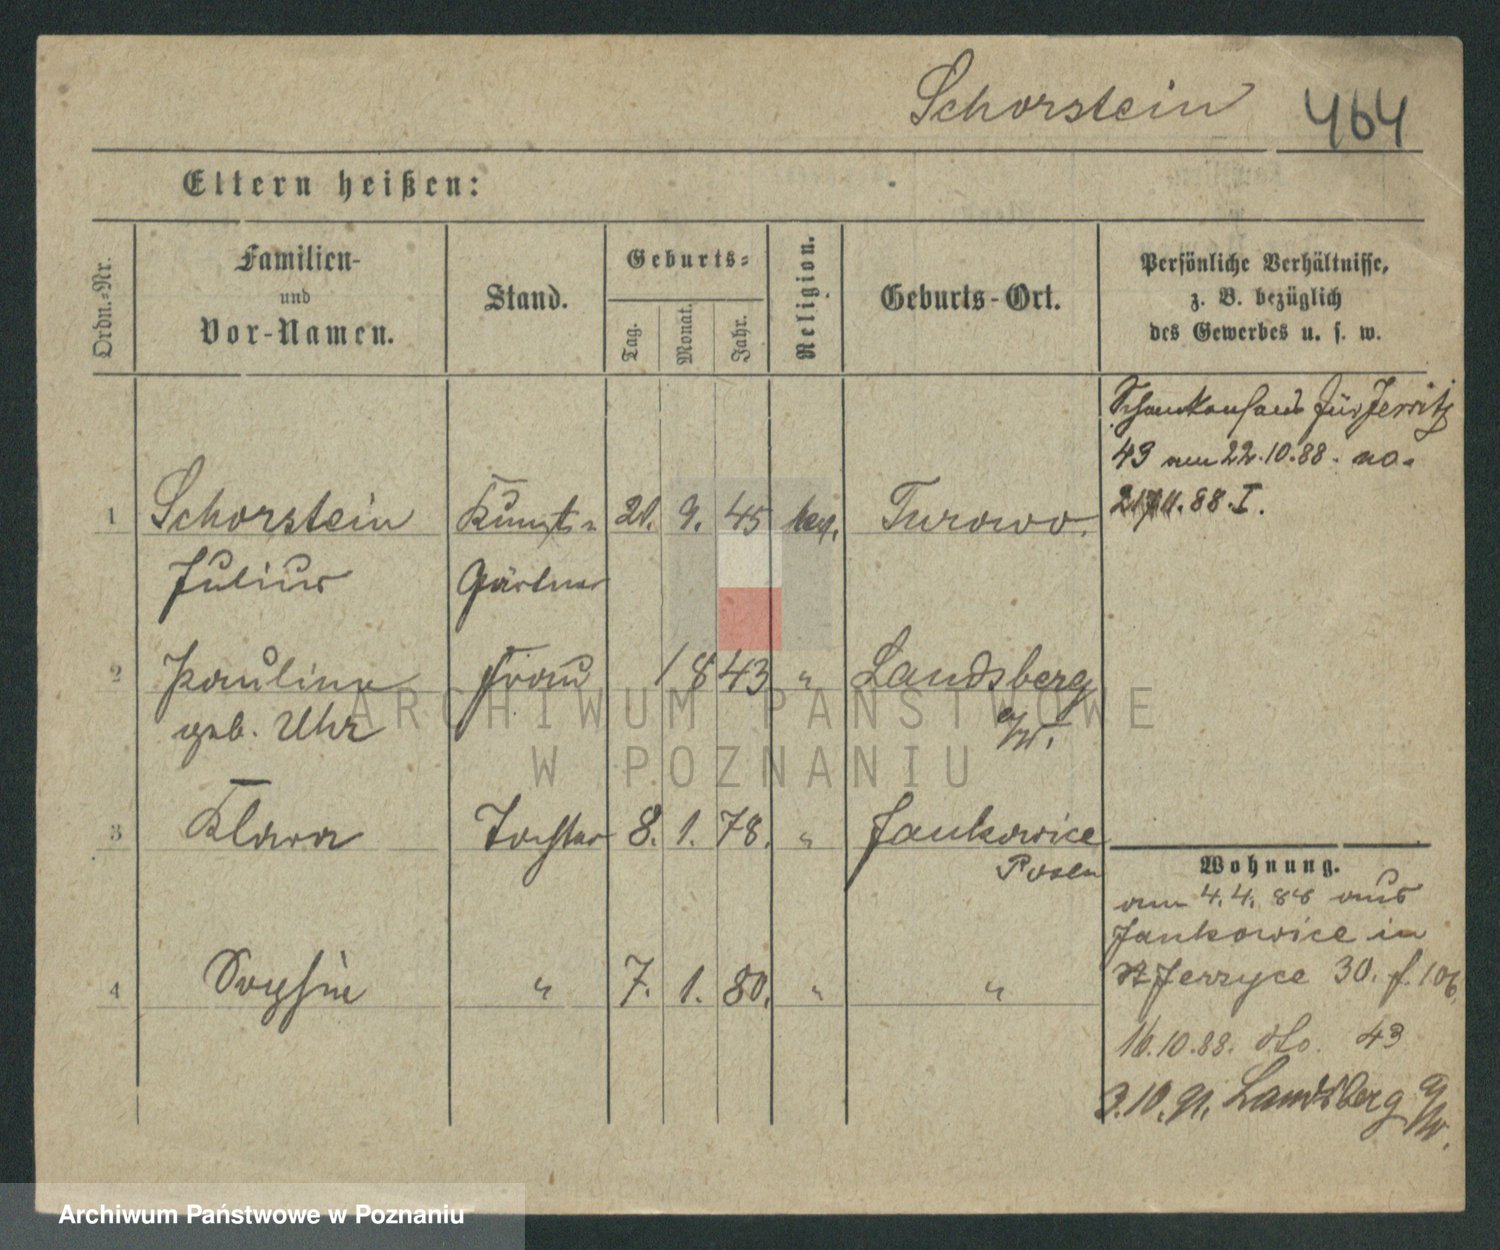 Schorstein 464
Eltern heißen:
Ordn.-Nr.
Familien-
und
Vor-Namen.
Stand.
Geburts-
Tag.
Monat.
Jahr.
Religion.
Geburts-Ort.
Persönliche Verhältnisse,
z. B. bezüglich
des Gewerbes u. s. w.
für Jerzitz
43 am 22.10.88.
88. I.
1 Schorstein Kunst- 21. 9. 45 Turowo.
Julius Gärtner
2 Pauline Frau 1843 " Landsberg
geb. Uhr a/W.
3 Klara Tochter 8. 1. 78. " Jankowice
Posen
4 Sophie " 7. 1. 80. " "
Wohnung.
am 4.4. 88 aus
Jankowice in
Jerzyce 30. f. 106.
16.10.88. dto. 43
3.10.91. Landsberg a/W.
ARCHIWUM PAŃSTWOWE
W POZNANIU
Archiwum Państwowe w Poznaniu